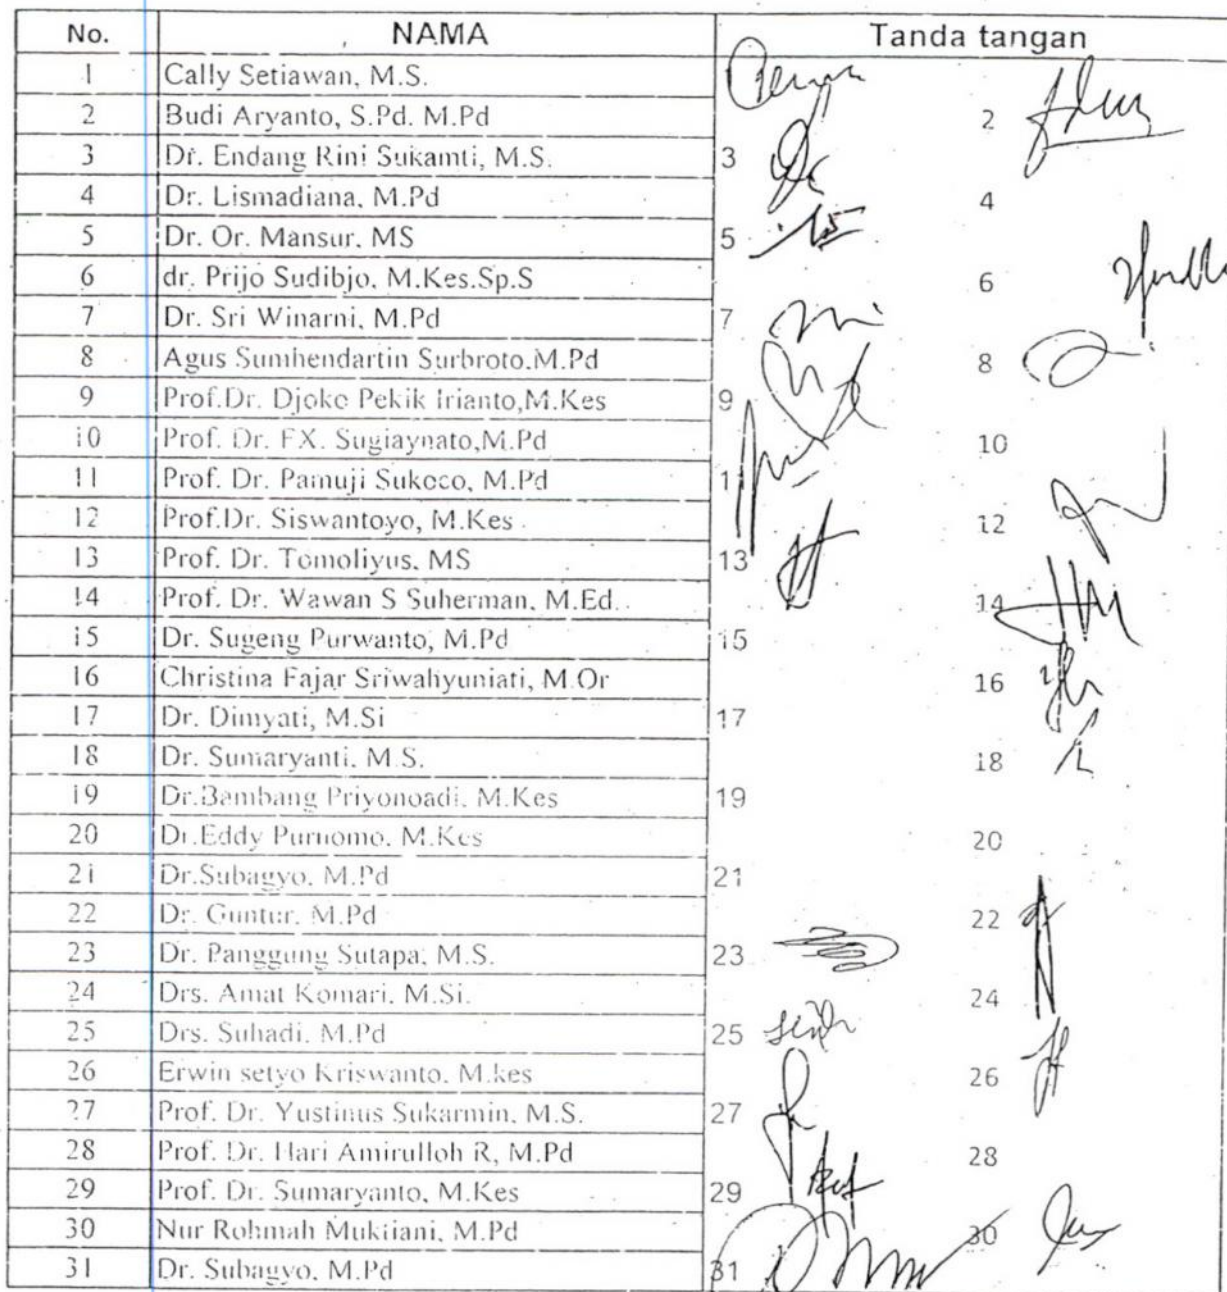 No. NAMA Tanda tangan
1 Cally Setiawan, M.S.
2 Budi Aryanto, S.Pd. M.Pd 2
3 Dr. Endang Rini Sukamti, M.S. 3
4 Dr. Lismadiana, M.Pd 4
5 Dr. Or. Mansur, MS 5
6 dr. Prijo Sudibjo, M.Kes.Sp.S 6
7 Dr. Sri Winarni, M.Pd 7
8 Agus Sumhendartin Surbroto.M.Pd 8
9 Prof.Dr. Djoko Pekik Irianto,M.Kes 9
10 Prof. Dr. FX. Sugiaynato,M.Pd 10
11 Prof. Dr. Pamuji Sukoco, M.Pd 11
12 Prof.Dr. Siswantoyo, M.Kes 12
13 Prof. Dr. Tomoliyus, MS 13
14 Prof. Dr. Wawan S Suherman, M.Ed. 14
15 Dr. Sugeng Purwanto, M.Pd 15
16 Christina Fajar Sriwahyuniati, M.Or 16
17 Dr. Dimyati, M.Si 17
18 Dr. Sumaryanti. M.S. 18
19 Dr.Bambang Priyonoadi, M.Kes 19
20 Dr.Eddy Purnomo, M.Kes 20
21 Dr.Subagyo, M.Pd 21
22 Dr. Guntur, M.Pd 22
23 Dr. Panggung Sutapa, M.S. 23
24 Drs. Amat Komari, M.Si. 24
25 Drs. Suhadi, M.Pd 25
26 Erwin setyo Kriswanto, M.kes 26
27 Prof. Dr. Yustinus Sukarmin, M.S. 27
28 Prof. Dr. Hari Amirulloh R, M.Pd 28
29 Prof. Dr. Sumaryanto, M.Kes 29
30 Nur Rohmah Muktiani, M.Pd 30
31 Dr. Subagyo, M.Pd 31